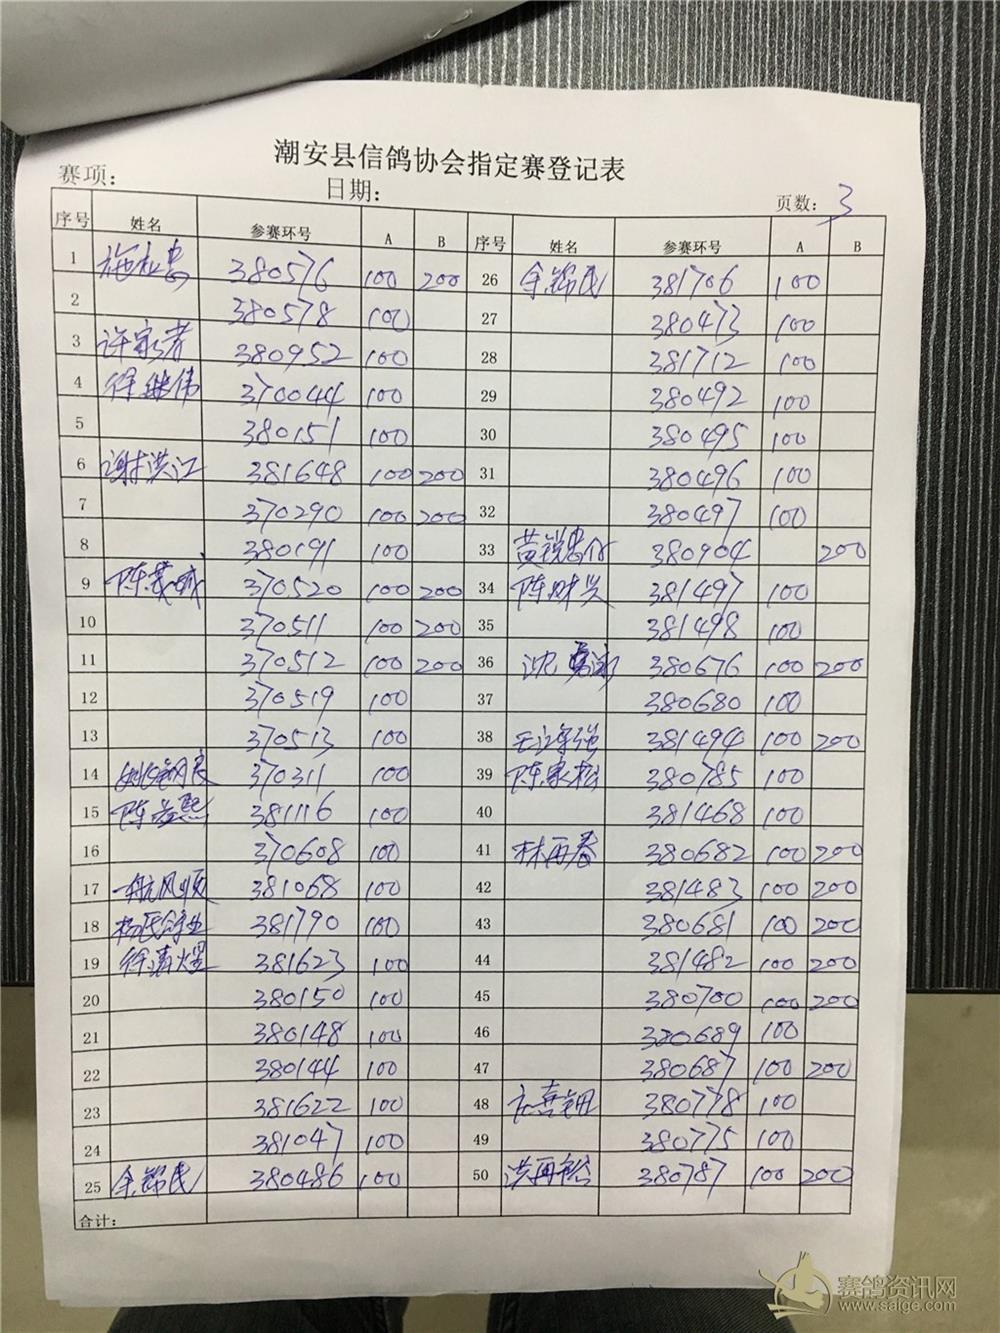 潮安县信鸽协会指定赛登记表
赛项: 日期: 页数: 3
序号 姓名 参赛环号 A B 序号 姓名 参赛环号 A B
1 380576 100 200 26 余锦民 381706 100
2 380578 100 27 380473 100
3 许家孝 380952 100 28 381712 100
4 徐继伟 370044 100 29 380492 100
5 380151 100 30 380495 100
6 谢洪江 381648 100 200 31 380496 100
7 370290 100 200 32 380497 100
8 380191 100 33 黄锐忠 380904 200
9 陈茂城 370520 100 200 34 陈财兴 381497 100
10 370511 100 200 35 381498 100
11 370512 100 200 36 沈 380676 100 200
12 370519 100 37 380680 100
13 370513 100 38 381494 100 200
14 370311 100 39 陈家松 380785 100
15 陈益熙 381116 100 40 381468 100
16 370608 100 41 林再春 380682 100 200
17 一航风顺 381068 100 42 381483 100 200
18 杨氏 381790 100 43 380681 100 200
19 徐清煜 381623 100 44 381482 100 200
20 380150 100 45 380700 100 200
21 380148 100 46 380689 100
22 380144 100 47 380687 100 200
23 381622 100 48 380778 100
24 381047 100 49 380775 100
25 余锦民 380486 100 50 洪再裕 380787 100 200
合计:
赛鸽资讯网
www.saige.com